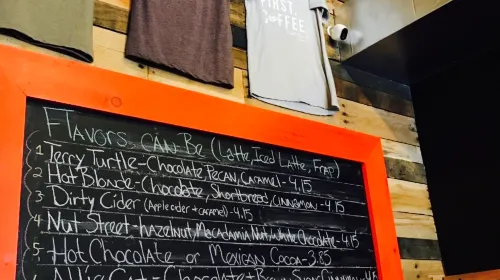 FIRST
COFFEE
Flavors can Be (Latte, Iced Latte, Frap)
1 Terry Turtle - Chocolate, Pecan, Caramel - 4.15
2 Hot Blonde - Chocolate, Shortbread, Cinnamon - 4.15
3 Dirty Cider (Apple cider + caramel) - 4.15
4 Nut Street - hazelnut, Macadamia Nut, White Chocolate - 4.15
5 - Hot Chocolate or Mexican Cocoa - 3.85
Cat - Chocolate + Brown Sugar Cinnamon